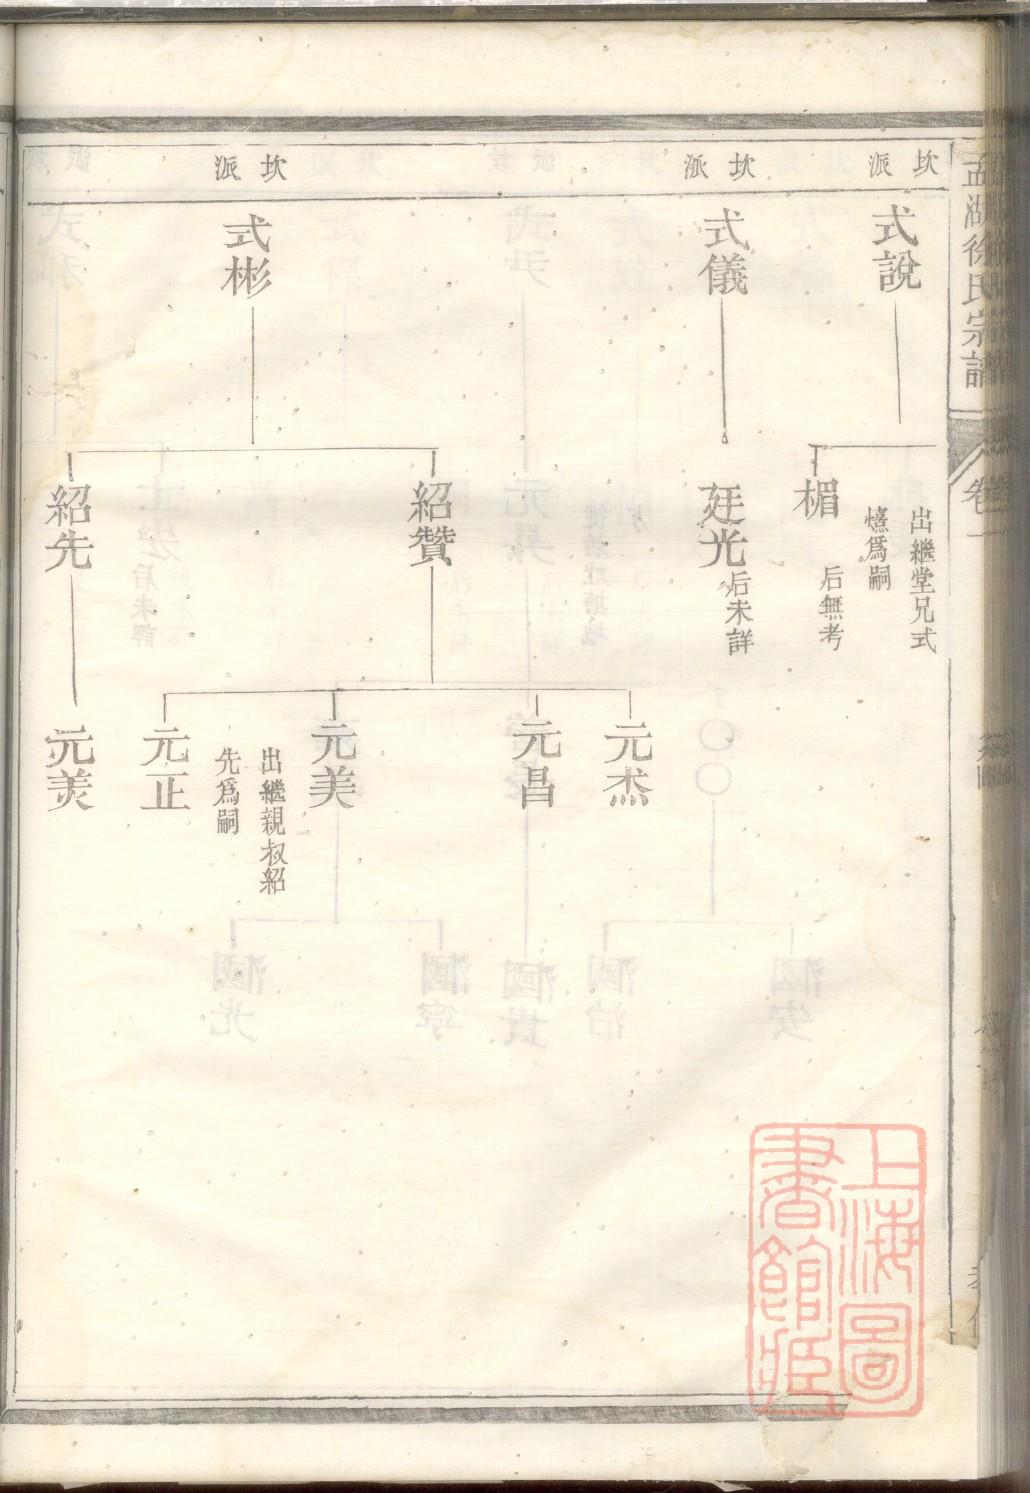 孟湖徐氏宗譜
卷一
坎派
式說
出繼堂兄式
爲嗣
楣
后無考
坎派
式儀
廷光
后未詳
坎派
式彬
紹贊
紹先
元杰
元昌
元美
出繼親叔紹
先爲嗣
元正
元美
上海圖書館藏